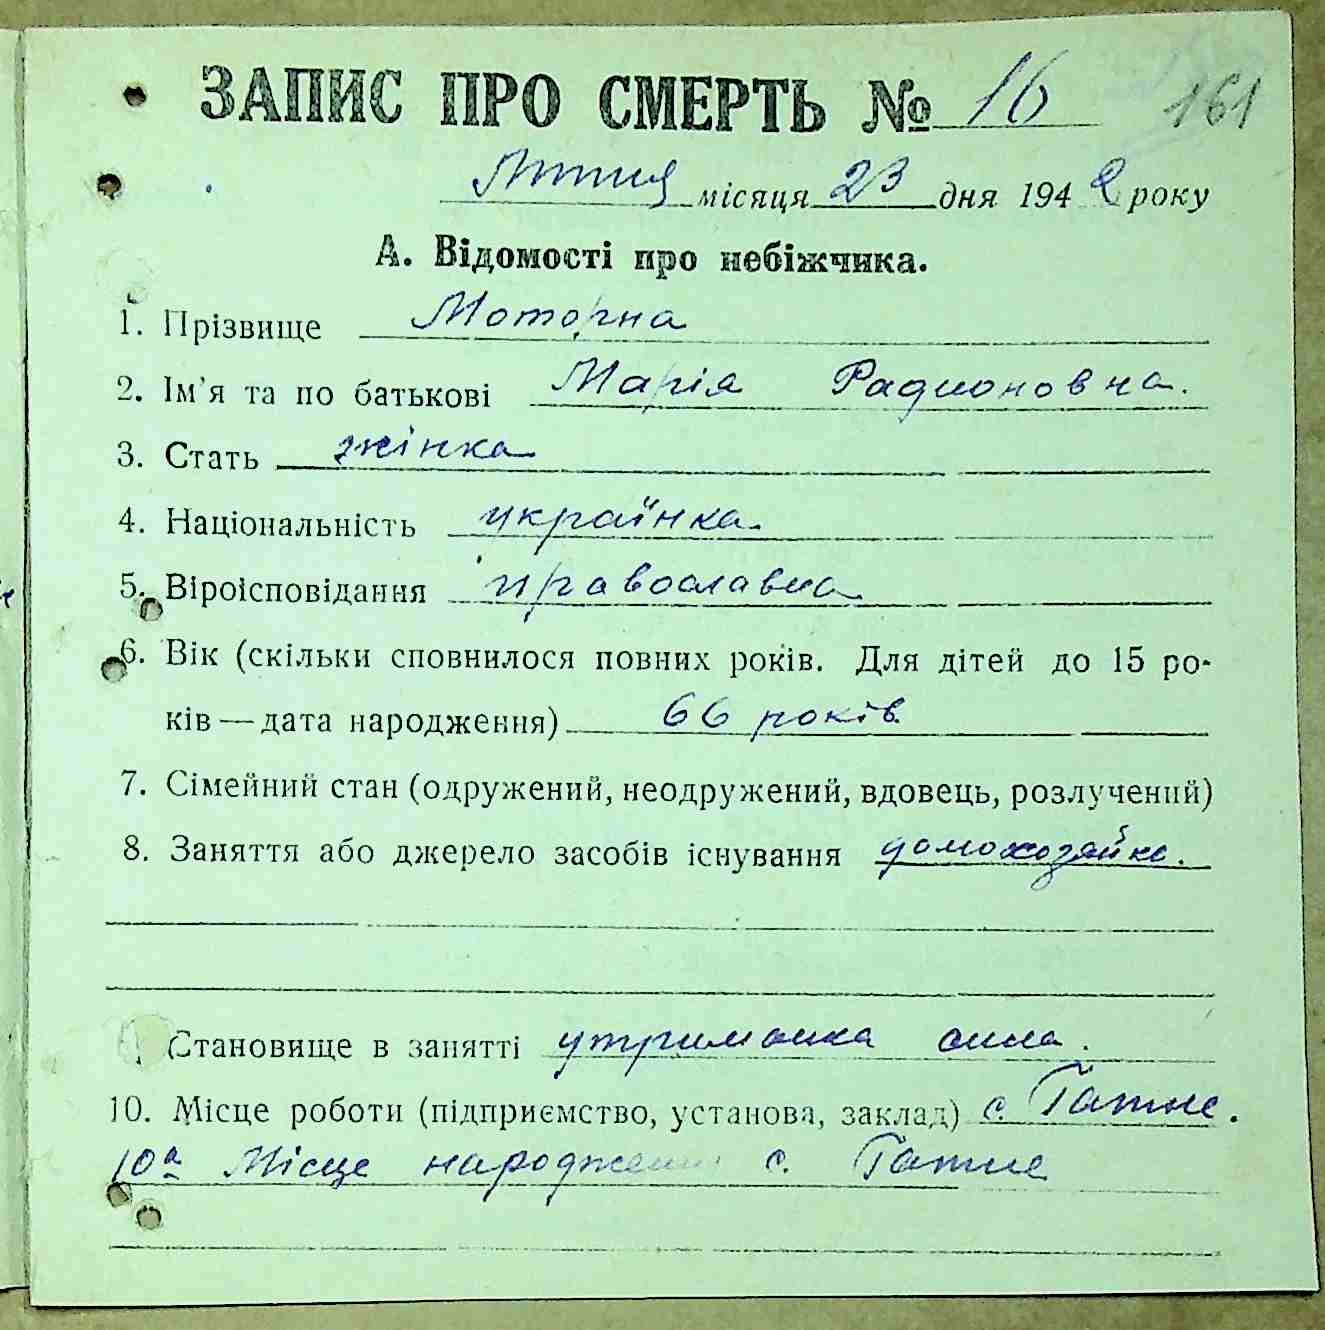 ЗАПИС ПРО СМЕРТЬ № 16 161
Лютня місяця 23 дня 1942 року
А. Відомості про небіжчика.
1. Прізвище Моторна
2. Ім'я та по батькові Марія Радионовна.
3. Стать жінка
4. Національність українка
5. Віроісповідання православна
6. Вік (скільки сповнилося повних років. Для дітей до 15 ро-
ків — дата народження) 66 років
7. Сімейний стан (одружений, неодружений, вдовець, розлучений)
8. Заняття або джерело засобів існування домохозяйка.
Становище в занятті утриманка сина.
10. Місце роботи (підприємство, установа, заклад) с. Гатне.
10а Місце народження с. Гатне